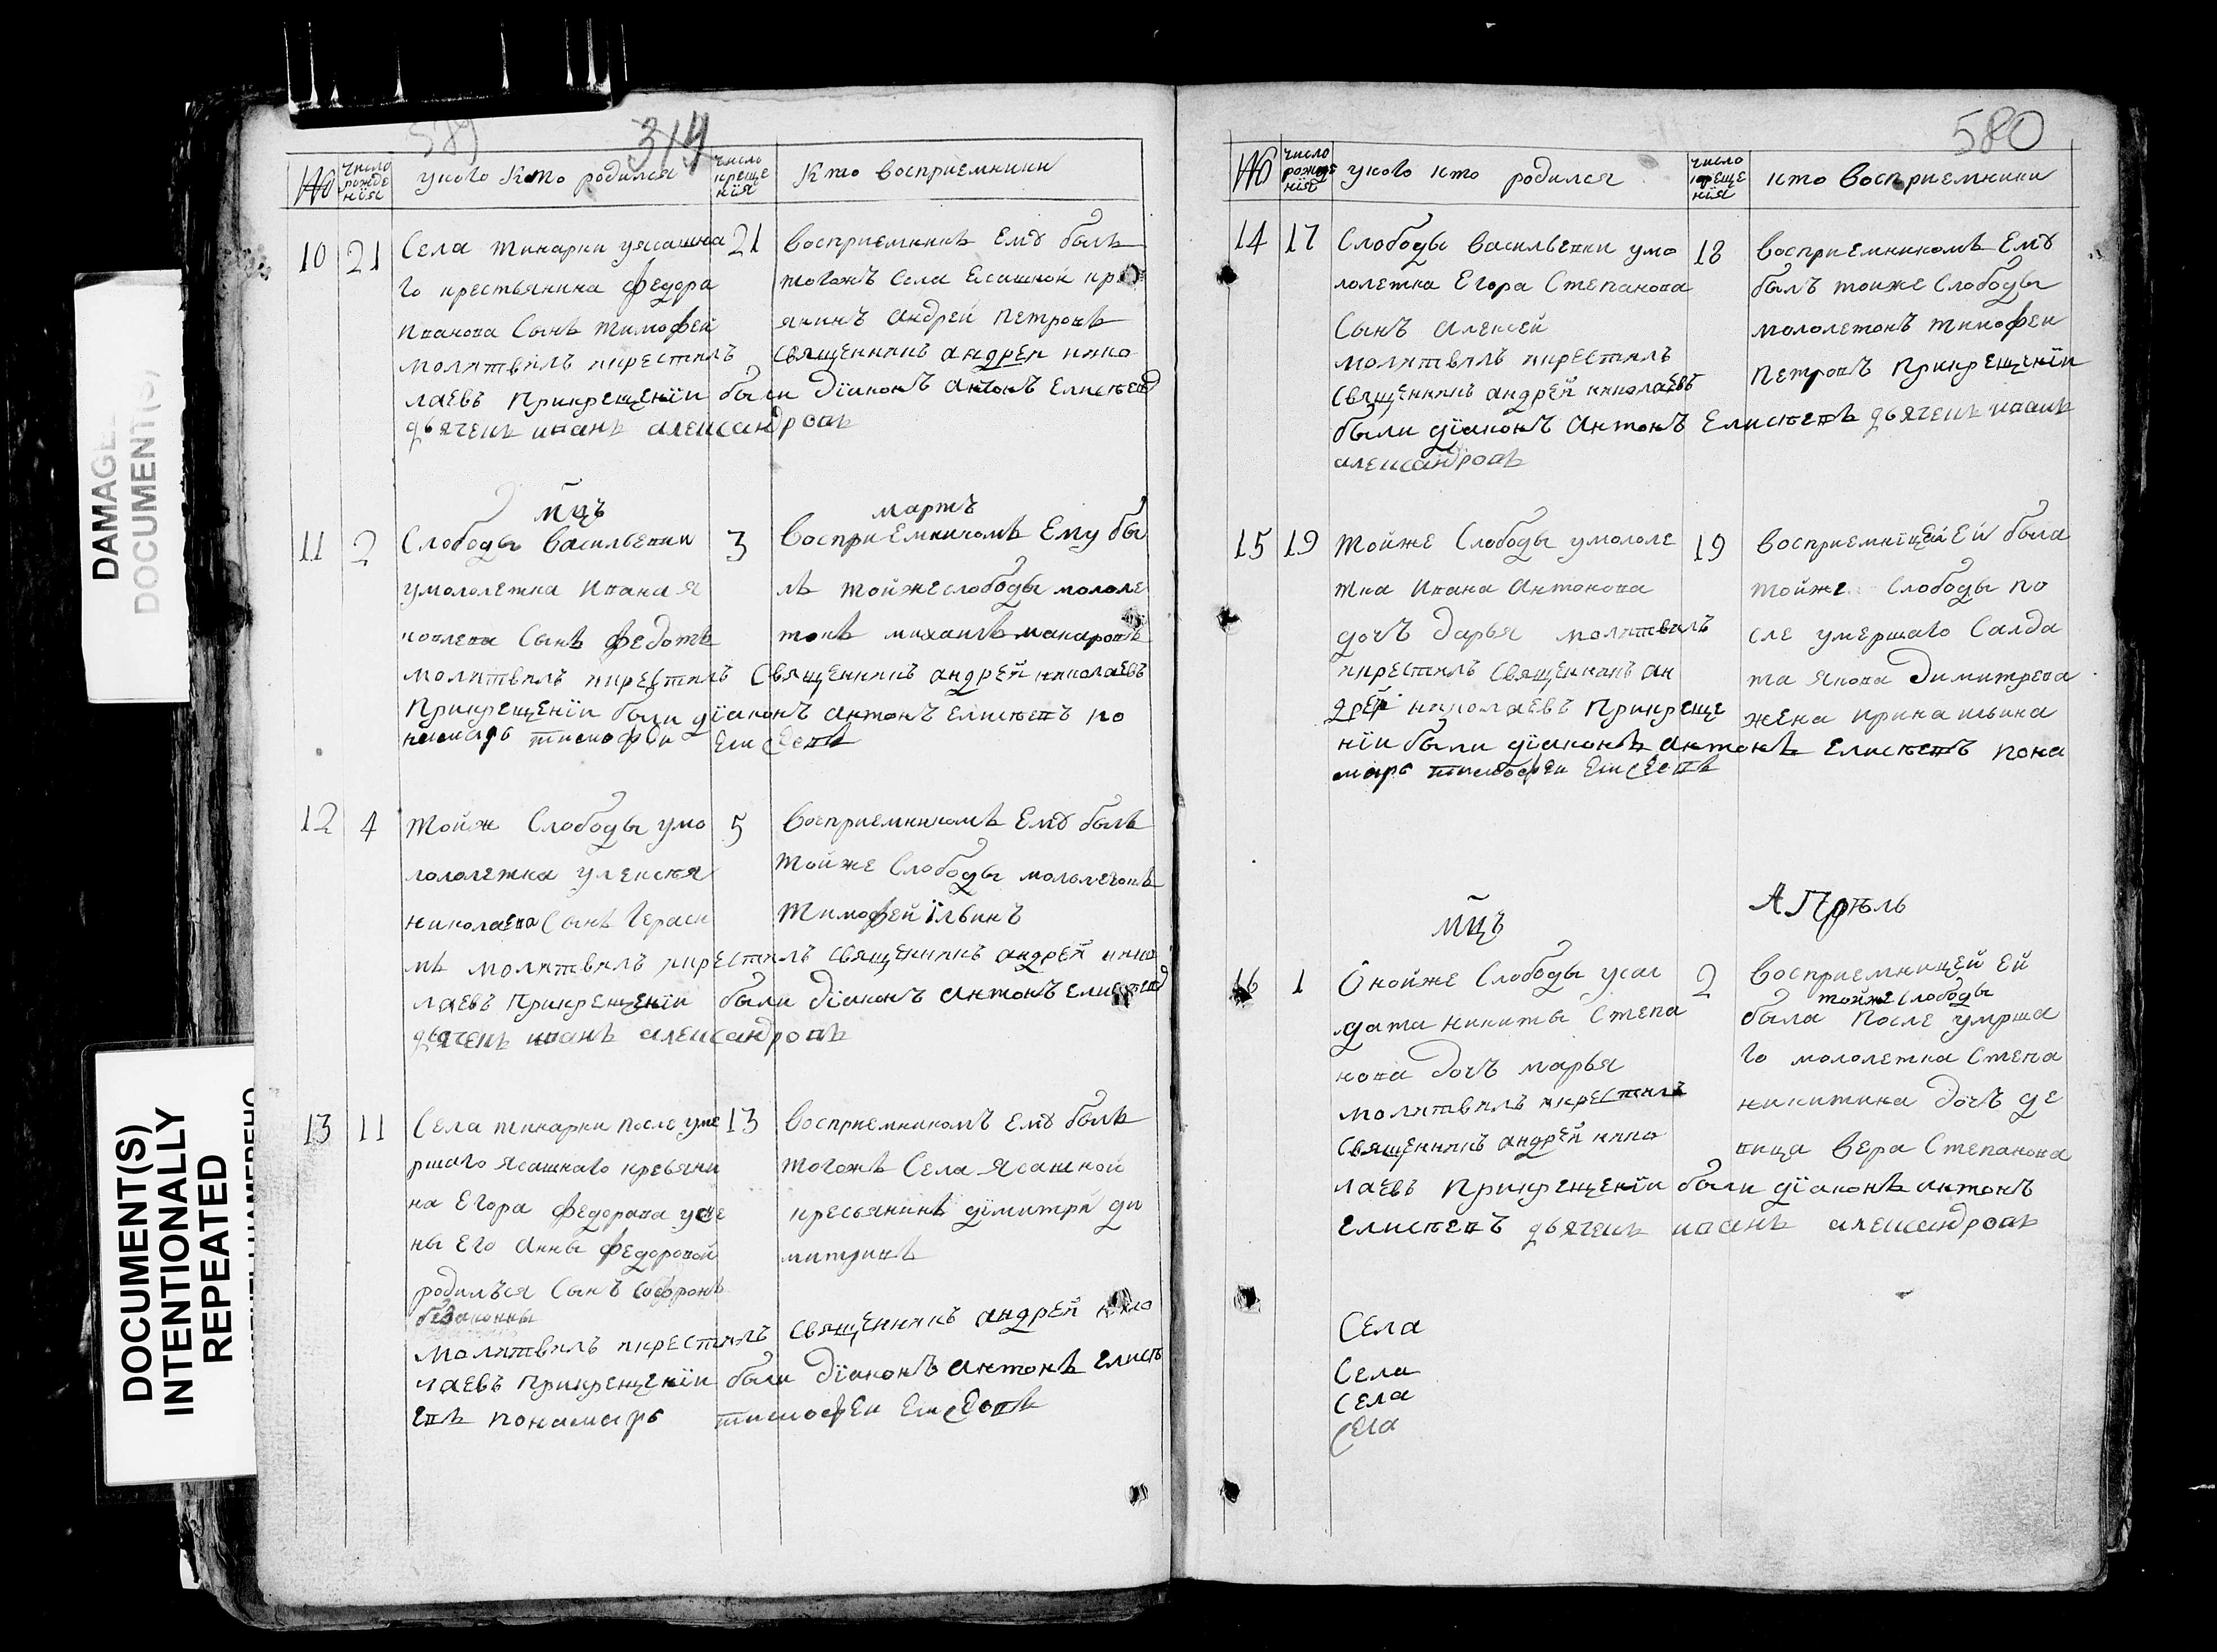 DAMAGE
DOCUMENT(S)
DOCUMENT(S)
INTENTIONALLY
REPEATED
319
№ число рожденїя укого Кто родился число крещенїя Кто восприемники
10 21 Села тинарки уясашна
го крестьянина федора
иванова Сынъ тимофей
молитвилъ икрестилъ священникъ андреи нико
лаевъ Прикрещенїи были дїаконъ антонъ Елисеев
дьячекъ иванъ александровъ
21 восприемникъ Емꙋ былъ
тогожъ Села Ясашной
янинъ андрей петровъ
мц̃ъ мартъ
11 2 Слободы васильевки
умололетка Ивана я
ковлева Сынъ федотъ
молитвилъ икрестилъ Священникъ андрей николаевъ
Прикрещенїи были дїаконъ антонъ елисѣевъ по
намарь тимофеи Елисеевъ
3 восприЕмникомъ Ему бы
лъ тойжеслободы мололе
токъ михаилъ макаровъ
12 4 тойж Слободы умо
лололетка улексѣя
николаева Сынъ Гераси
мъ молитвилъ икрестилъ священникъ андрей нико
лаевъ Прикрещенїи были дїаконъ антонъ елисѣев
дьячекъ иванъ александровъ
5 восприемникомъ Емꙋ былъ
тойже Слободы мололетокъ
Тимофей їльинъ
13 11 Села тинарки после уме
ршаго ясашнаго кревяни
на Егора федорова уже
ны Его Анны федоровой
родилъся Сынъ Софронъ
безаконны
молитвилъ икрестилъ священникъ андрей нико
лаевъ прикрещенїи были дїаконъ антонъ елисѣ
евъ понамарь тимофеи Елисеевъ
13 восприемникомъ Емꙋ былъ
тогожъ Села Ясашной
кресьянинъ димитри ди
митривъ
580
№ число рожденїя укого кто родился число крещенїя кто восприемники
14 17 Слободы васильевки умо
лолетка Егора Степанова
Сынъ алексей
молитвилъ икрестилъ
священникъ андрей николаевъ
были дїаконъ антонъ Елисѣевъ дьячекъ иванъ
александровъ
18 восприемникомъ Емꙋ
былъ тоиже Слободы
мололетокъ тимофеи
Петровъ Прикрещенїи
15 19 тойже Слободы умололе
тка Ивана Антонова
дочъ дарья молитвилъ
икрестилъ священикъ ан
дрей николаевъ Прикреще
нїи были дїаконъ антонъ Елисѣевъ пона
марь тимофеи Елисеевъ
19 восприемницей Ей была
тойже Слободы по
сле умершаго Салда
та якова Димитрева
жена ирина ильина
мц̃ъ АПрѣль
16 1 Онойже Слободы усал
дата никиты Степа
нова дочъ марья
молитвилъ икрестилъ
священникъ андрей нико
лаевъ Прикрещенїи были дїаконъ антонъ
елисѣевъ дьячекъ иванъ александровъ
2 восприемницей Ей
тойже слободы
была После умрша
го мололетка Степа
никитина дочъ де
вица Вера Степанова
Села
Села
Села
Села